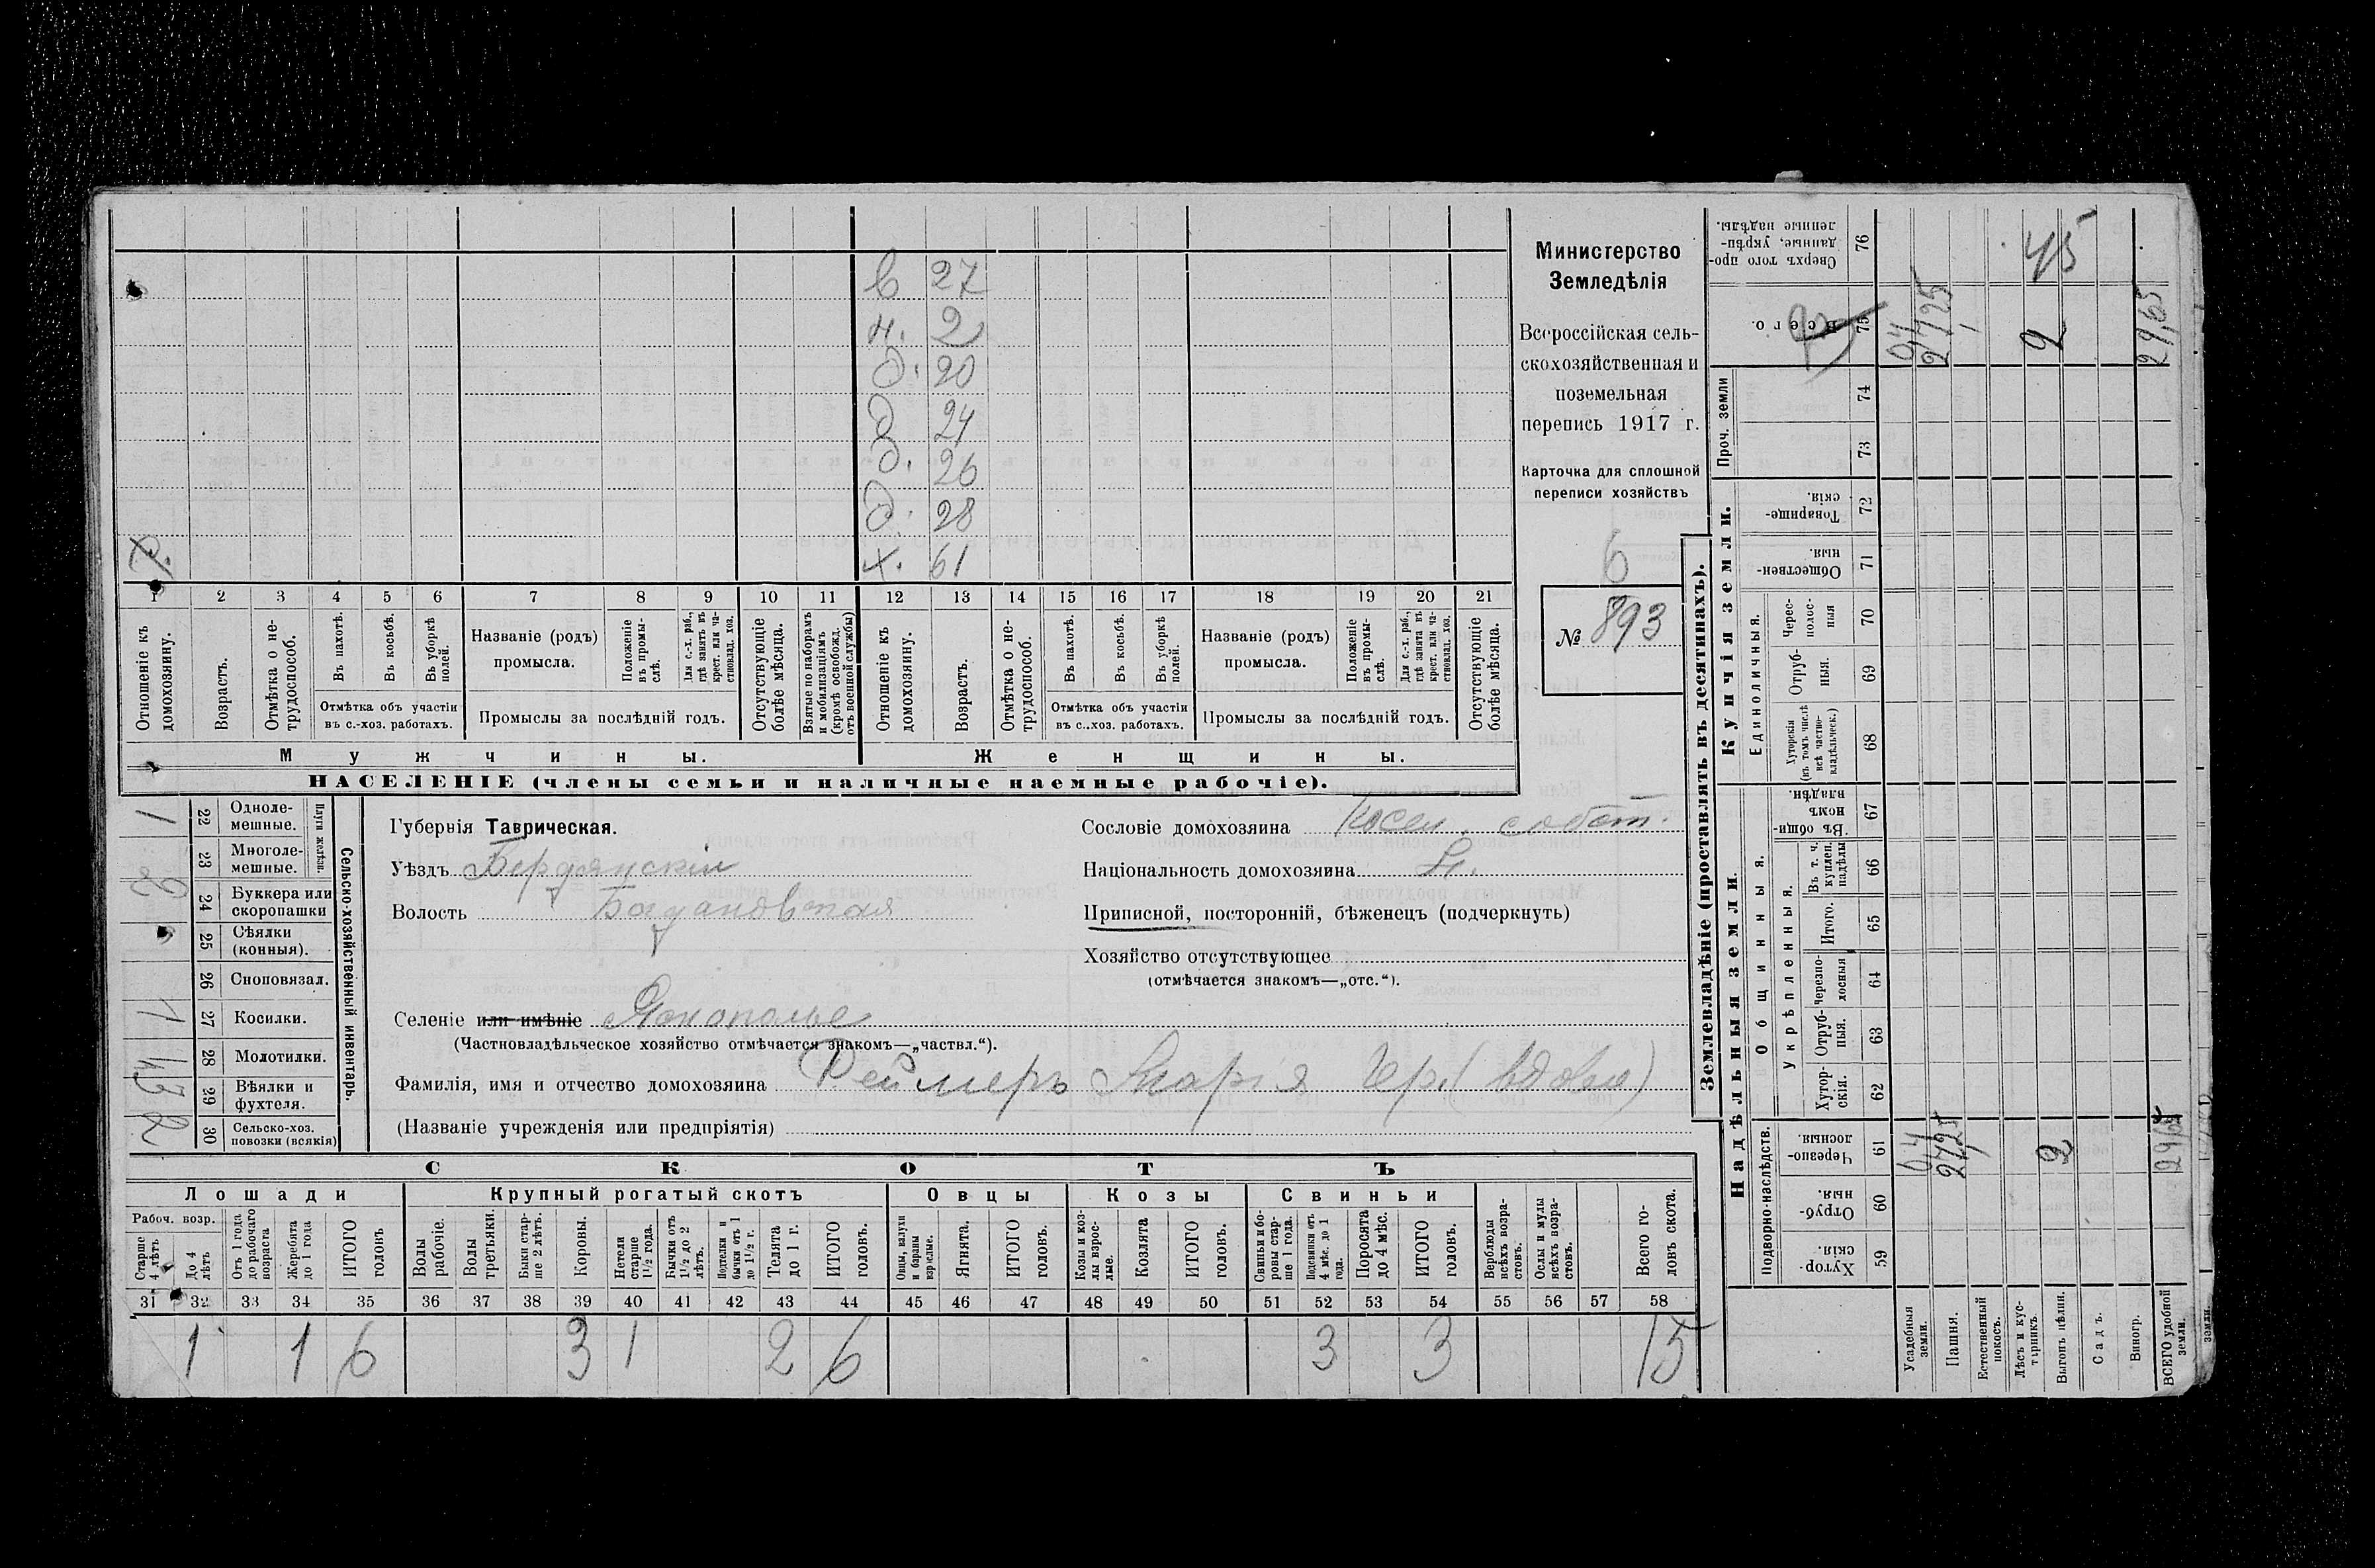 в 27
н. 2
д. 20
д 24
д. 26
д. 28
х. 61
1 2 3 4 5 6 7 8 9 10 11 12 13 14 15 16 17 18 19 20 21
Отношеніе къ домохозяину.
Возрастъ.
Отмѣтка о нетрудоспособ.
Въ пахотѣ.
Въ косьбѣ.
Въ уборкѣ полей.
Отмѣтка объ участіи въ с.-хоз. работахъ.
Названіе (родъ) промысла.
Положеніе въ промыслѣ.
Для с.-х. раб., гдѣ занятъ въ крест. или частновлад. хоз.
Промыслы за послѣдній годъ.
Отсутствующіе болѣе мѣсяца.
Взятые по наборамъ и мобилизаціямъ (кромѣ освобожд. отъ военной службы)
Отношеніе къ домохозяину.
Возрастъ.
Отмѣтка о нетрудоспособ.
Въ пахотѣ.
Въ косьбѣ.
Въ уборкѣ полей.
Отмѣтка объ участіи въ с.-хоз. работахъ.
Названіе (родъ) промысла.
Положеніе въ промыслѣ.
Для с.-х. раб., гдѣ занята въ крест. или частновлад. хоз.
Промыслы за послѣдній годъ.
Отсутствующіе болѣе мѣсяца.
Мужчины.
Женщины.
НАСЕЛЕНІЕ (члены семьи и наличные наемные рабочіе).
Министерство
Земледѣлія
Всероссійская сель-
скохозяйственная и
поземельная
перепись 1917 г.
Карточка для сплошной
переписи хозяйствъ
6
№ 893
Сельско-хозяйственный инвентарь.
Плуги желѣзн.
22 Одноле-мешные. 1
23 Многоле-мешные.
24 Буккера или скоропашки
25 Сѣялки (конныя).
26 Сноповязал.
27 Косилки. 1
28 Молотилки.
29 Вѣялки и фухтеля.
30 Сельско-хоз. повозки (всякія) 2
Губернія Таврическая.
Уѣздъ Бердянскій
Волость Богдановская
Селеніе или имѣніе
(Частновладѣльческое хозяйство отмѣчается знакомъ—„частвл.“).
Фамилія, имя и отчество домохозяина Реймеръ Марія Гер. (вдова)
(Названіе учрежденія или предпріятія)
Сословіе домохозяина посел. собст.
Національность домохозяина Н.
Приписной, посторонній, бѣженецъ (подчеркнуть)
Хозяйство отсутствующее
(отмѣчается знакомъ—„отс.“).
СКОТЪ
Лошади
Крупный рогатый скотъ
Овцы
Козы
Свиньи
Рабоч. возр.
Старше 4 лѣтъ
До 4 лѣтъ
Отъ 1 года до рабочаго возраста
Жеребята до 1 года
ИТОГО головъ
Волы рабочіе.
Волы третьяки.
Быки старше 2 лѣтъ.
Коровы.
Нетели старше 1½ года.
Бычки отъ 1½ до 2 лѣтъ.
Подтелки и бычки отъ 1 до 1½ г.
Телята до 1 г.
ИТОГО головъ.
Овцы, валухи и бараны взрослые.
Ягнята.
ИТОГО головъ.
Козы и козлы взрослые.
Козлята
ИТОГО головъ.
Свиньи и боровы старше 1 года.
Подсвинки отъ 4 мѣс. до 1 года.
Поросята до 4 мѣс.
ИТОГО головъ.
Верблюды всѣхъ возрастовъ.
Ослы и мулы всѣхъ возрастовъ.
Всего головъ скота.
31 32 33 34 35 36 37 38 39 40 41 42 43 44 45 46 47 48 49 50 51 52 53 54 55 56 57 58
1 1 6 3 1 2 6 3 3 15
Землевладѣніе (проставлять въ десятинахъ).
Надѣльныя земли.
Купчія земли.
Проч. земли
Подворно-наслѣдств.
Общинныя.
Укрѣпленныя.
Единоличныя.
Сверхъ того проданные, укрѣпленные надѣлы. 76
Всего. 75
74
73
Товарищескія. 72
Общественныя 71
Чересполосныя 70
Отрубныя. 69
Хуторскія (въ томъ числѣ всѣ частновладѣльческ.) 68
Въ общинномъ владѣн. 67
Въ т. ч. куплен. надѣлы 66
Итого. 65
Черезполосныя 64
Отрубныя. 63
Хуторскія. 62
Черезполосныя. 61
Отрубныя. 60
Хуторскія. 59
Усадебныя земли.
Пашня.
Естественный покосъ.
Лѣсъ и кустарникъ.
Выгонъ цѣлин.
Садъ.
Виногр.
ВСЕГО удобной земли.
04
2725
2
45
2965
04
2725
2
2965